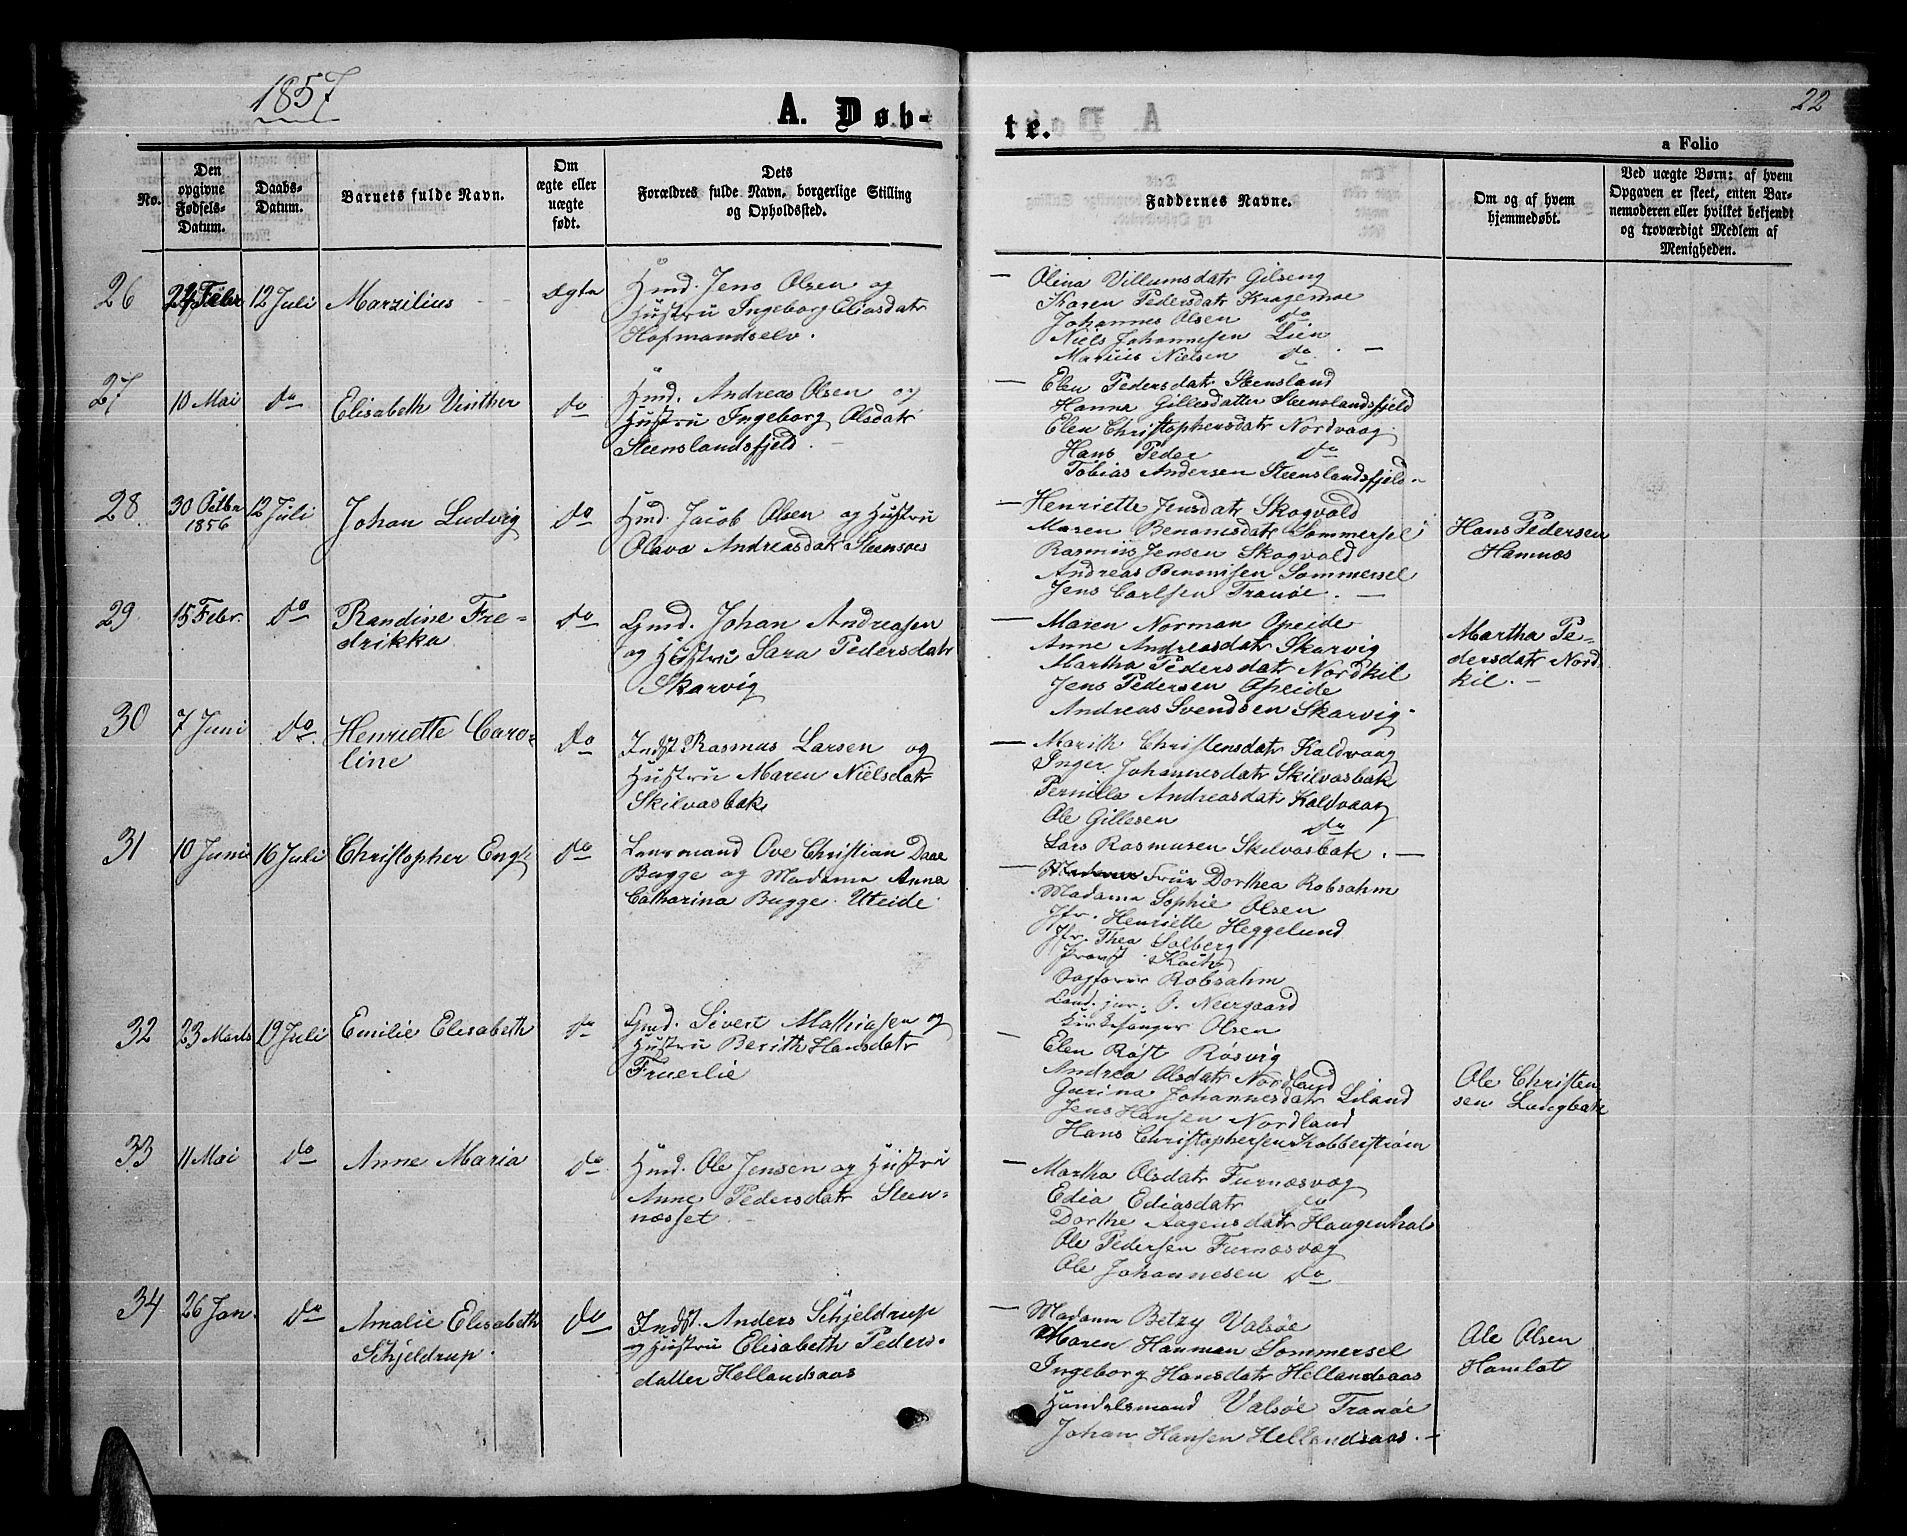 1857
22
A. Døb-
te.
a Folio
No.
Den
opgivne
Fødsels-
Datum.
Daabs-
Datum.
Barnets fulde Navn.
Om
ægte eller
uægte
født.
Dets
Forældres fulde Navn, borgerlige Stilling
og Opholdssted.
Faddernes Navne.
Om og af hvem
hjemmedøbt.
Ved uægte Børn: af hvem
Opgaven er skeet, enten Bar-
nemoderen eller hvilket bekjendt
og troværdigt Medlem af
Menigheden.
26
Febr
12 Juli
Marzilius
ægte
Hmd. Jens Olsen og
Hustru Ingeborg Eliasdatr
Hofmandselv.
Olina Villumsdatr Gilseng
Karen Pedersdatr Kragemoe
Johannes Olsen do
Niels Johannessen Lien
Marius Nielsen do.
27
10 Mai
do
Elisabeth Vinther
do
Hmd. Andreas Olsen og
Hustru Ingeborg Olsdatr
Steenslandsfjeld.
Elen Pedersdatr Steensland
Hanna Gillesdatter Steenslandsfjeld
Elen Christophersdatr Nordvaag
Hans Peder do
Tobias Andersen Steenslandsfjeld
28
30 Octbr
1856
12 Juli
Johan Ludvig
do
Hmd. Jacob Olsen og Hustru
Olava Andreasdatr Steensoes
Henriette Jensdatr Skogvold
Maren Benonisdatr Sommersel
Rasmus Jensen Skogvold
Andreas Benonisen Sommersel
Jens Carlsen Tranøe.
Hans Pedersen
Hamnæs
29
15 Febr.
do
Randine Fre-
drikka
do
Gmd. Johan Andreasen
og Hustru Sara Pedersdatr
Skarvig
Maren Norman Opeide
Anne Andreasdatr Skarvig
Martha Pedersdatr Nordkil
Jens Pedersen Opeide
Andreas Svendsen Skarvig
Martha Pe-
dersdatr Nord-
kil.
30
7 Juni
do.
Henriette Caro-
line
do
Indst Rasmus Larsen og
Hustru Maren Nielsdatr
Skilvasbak
Marith Christensdatr Kaldvaag
Inger Johannesdatr Skilvasbak
Pernille Andreasdatr Kaldvaag
Ole Gillesen do
Lars Rasmusen Skilvasbak.
31
10 Juni
16 Juli
Christopher Engl
do
Lensmand Ove Christian Daae
Bugge og Madama Anna
Catharina Bugge. Uteide
Frue Dorthea Robsahm
Madama Sophie Olsen
Jfr. Henriette Heggelund
Jfr. Thea Solberg
Provst Koch
Sagfører Robsahm
Cand. jur. O. Neergaard
Kirkesanger Olsen
32
23 Marts
19 Juli
Emilie Elisabeth
do
Gmd. Sivert Mathiasen og
Hustru Berith Hansdatr
Fruerlie
Elen Røst Røsvig
Andrea Olsdatr Nordland
Gurina Johannesdatr Liland
Jens Hansen Nordland
Hans Christophersen Kobberstrøm
Ole Christen
sen Langbak
33
11 Mai
do
Anne Maria
do
Hmd. Ole Jensen og Hustru
Anne Pedersdatr Steen-
næsset
Martha Olsdatr Furnæsvæg
Edia Ediasdatr do
Dorthe Aagensdatr Haagenhals
Ole Pedersen Furnæsvæg
Ole Johannesen do
34
26 Jan.
do
Amalie Elisabeth
Schjeldrup.
do
Indst. Anders Schjeldrup
og Hustru Elisabeth Peders-
datter Hellandsaas
Madam Betzy Valsøe
Maren Hanman Sommersel
Ingeborg Hansdatr Hellandsaas
Handelsmand Valsøe Tranøe
Johan Hansen Hellandsaas.
Ole Olsen
Hamlot